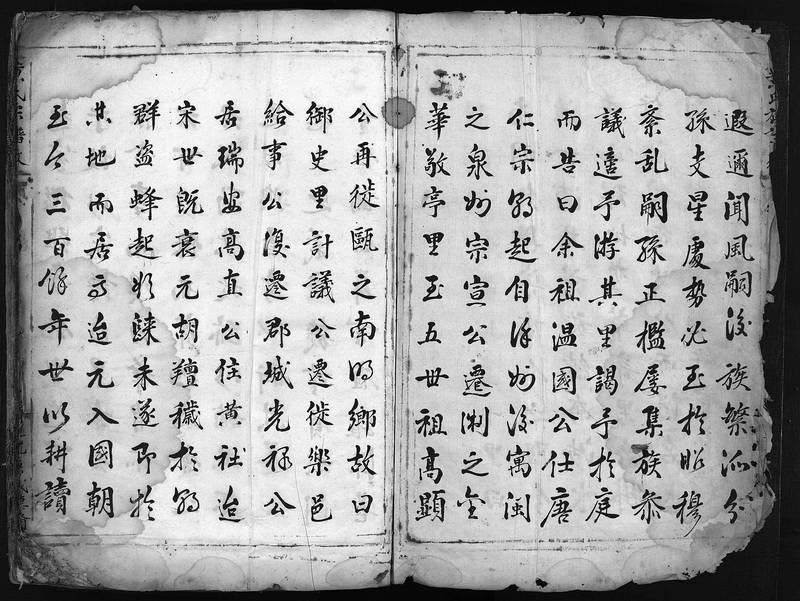 遐邇聞風嗣後族繁派分
孫支星處勢必至於昭穆
紊乱嗣孫正檻屡集族叅
議適予游其里謁予於庭
而告曰余祖温國公仕唐
仁宗朝起自徐州後寓闽
之泉州宗宣公遷淛之金
華敬亭里至五世祖高顕
公再徙甌之南明鄉故曰
御史里計議公遷徙樂邑
給事公復遷郡城光禄公
居瑞安高直公住黄社迨
宋世既衰元胡羶穢於朝
群盗蜂起於未遂即於
其地而居焉迨元入國朝
至今三百餘年世以耕讀